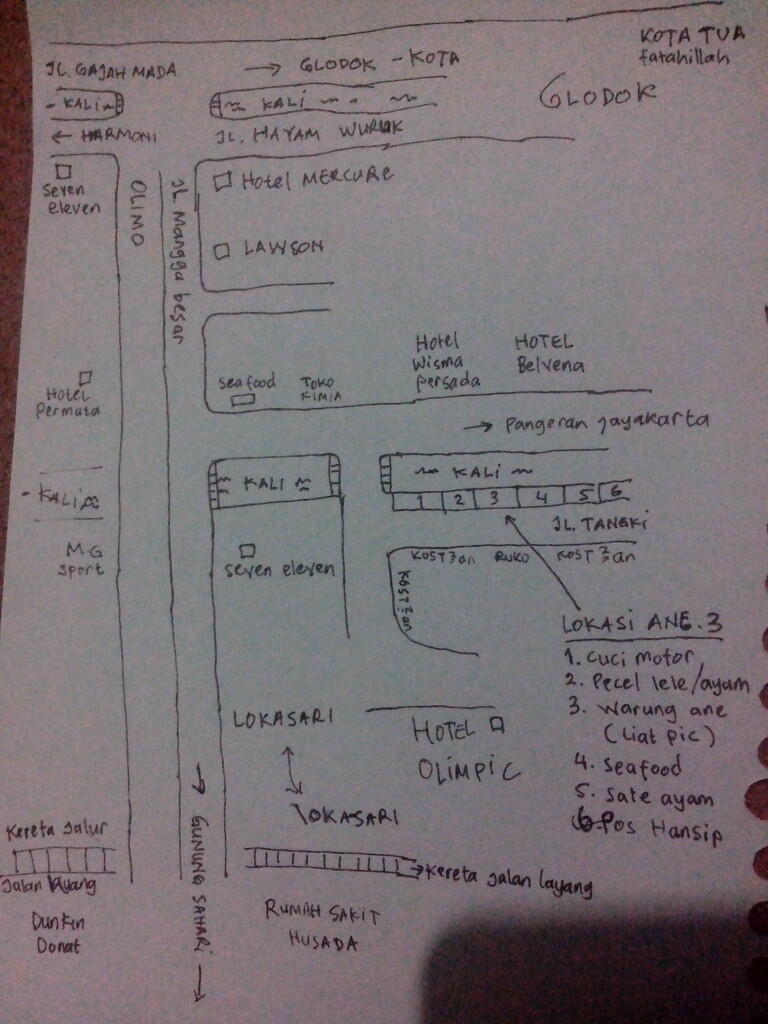 KOTA TUA
fatahillah
JL. GAJAH MADA → GLODOK - KOTA
- KALI ~
~ KALI ~ - ~
GLODOK
← HARMONI
JL. HAYAM WURUK
Seven
eleven
OLIMO
JL. Mangga besar
Hotel MERCURE
LAWSON
Hotel
Permata
Seafood
TOKO
KIMIA
Hotel
Wisma
Persada
HOTEL
Belvena
→ Pangeran Jayakarta
- KALI ~
KALI ~
~ KALI ~
1 2 3 4 5 6
JL. TANGKI
MG
Sport
Seven eleven
KOST2an RUKO KOST2an
KOST2an
LOKASI ANE.3
1. Cuci motor
2. Pecel lele/ayam
3. Warung ane
(Liat pic)
4. Seafood
5. Sate ayam
6. Pos Hansip
LOKASARI
HOTEL
OLIMPIC
LOKASARI
→ GUNUNG SAHARI →
Kereta Jalur
Jalan layang
→ Kereta Jalan layang
Dunkin
Donat
RUMAH SAKIT
HUSADA